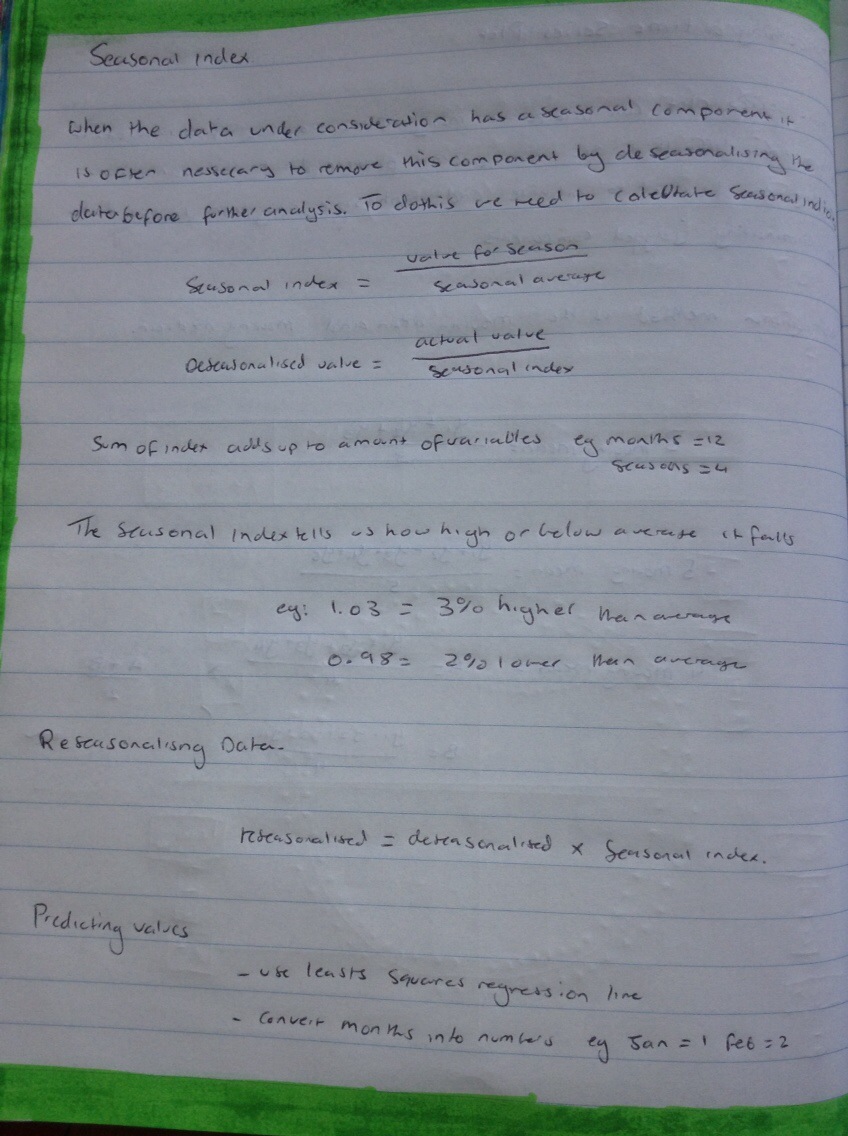 Seasonal Index
When the data under consideration has a seasonal component it
is often nessecary to remove this component by deseasonalising the
data before further analysis. To do this we need to calcultate seasonal indic
Seasonal index = value for season
seasonal average
Deseasonalised value = actual value
seasonal index
Sum of index adds up to amount of variables eg months = 12
seasons = 4
The seasonal index tells us how high or below average it falls
eg: 1.03 = 3% higher than average
0.98 = 2% lower than average
Reseasonalisng Data.
reseasonalised = deseasonalised x Seasonal index.
Predicting values
- use leasts squares regression line
- convert months into numbers eg Jan = 1 Feb = 2